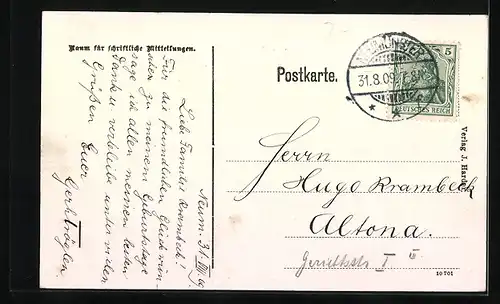 Raum für schriftliche Mitteilungen.
Neum. 31. VIII. 09.
Liebe Familie Krambeck!
Für die freundlichen Glückwün-
sche zu meinem Geburtstage
sage ich allen meinen besten
Dank u. verbleibe unter vielen
Grüßen Euer
Postkarte.
31.8.09.
5
DEUTSCHES REICH
Herrn
Hugo Krambeck
Altona.
I
Verlag J. Harder
10701